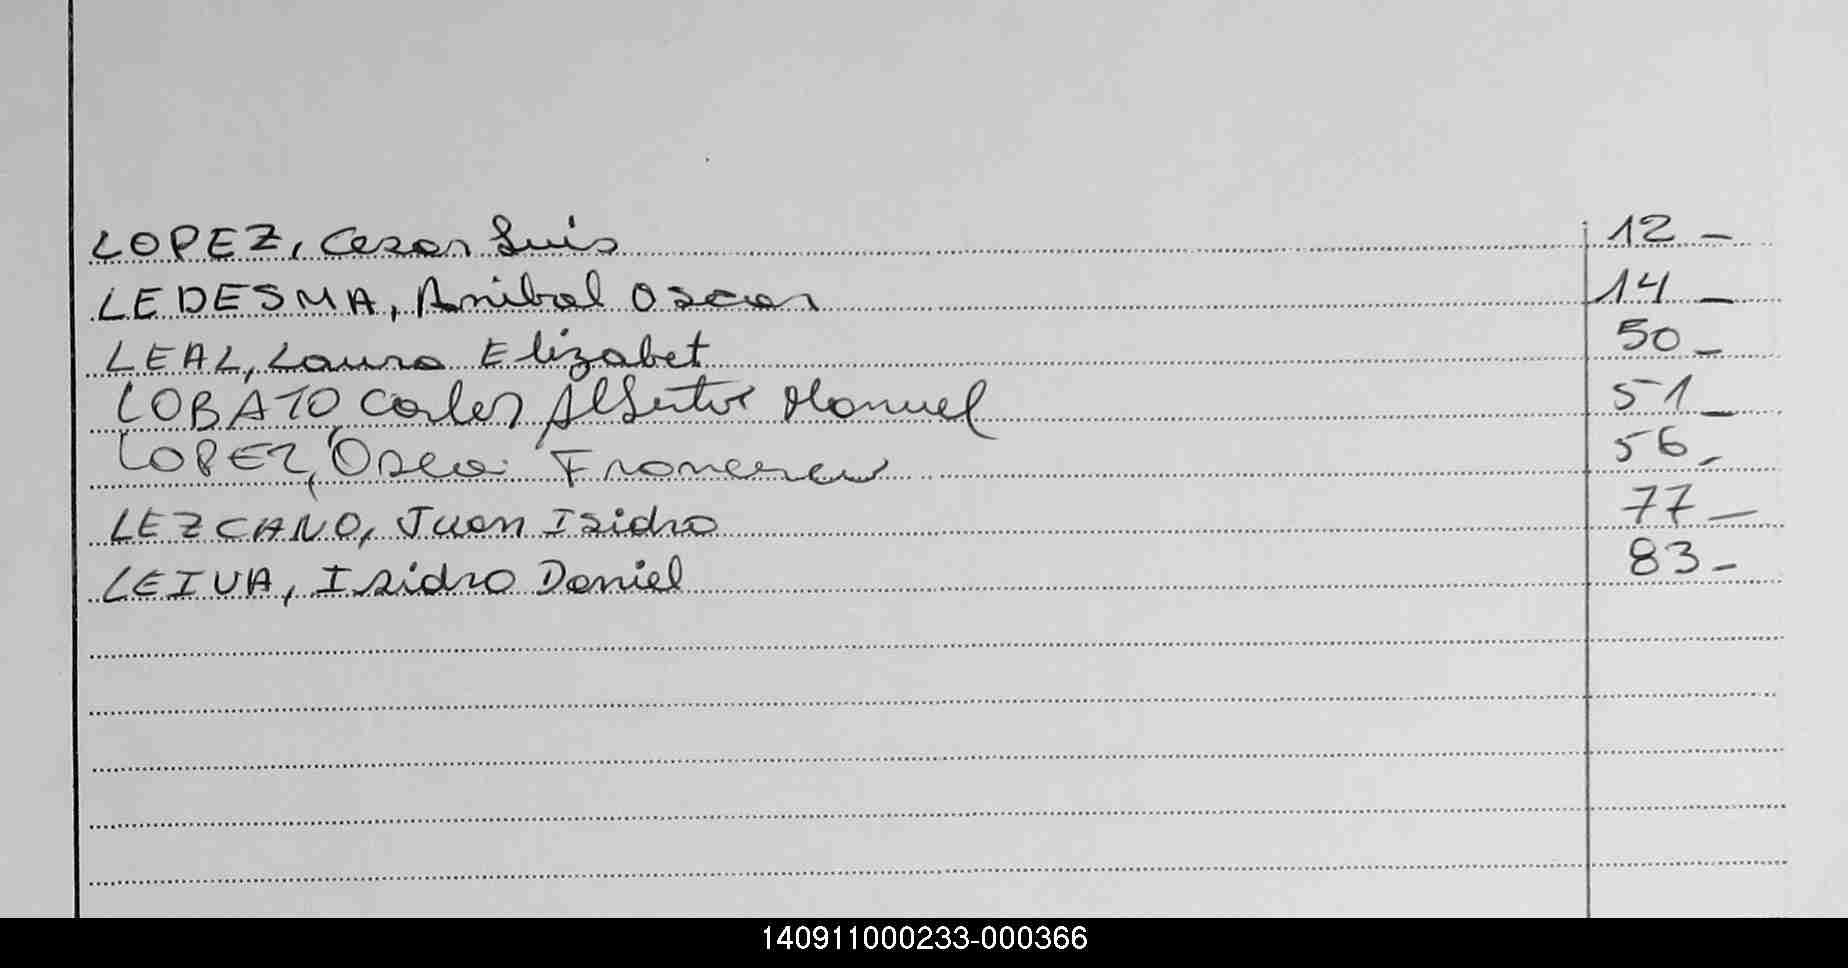 LOPEZ, Cesar Luis 12 _
LEDESMA, Anibal Oscar 14 _
LEAL, Laura Elizabet 50 _
LOBATO, Carlos Alberto Manuel 51 _
LOPEZ, Oscar Francisco 56 _
LEZCANO, Juan Isidro 77 _
LEIVA, Isidro Daniel 83 _
140911000233-000366